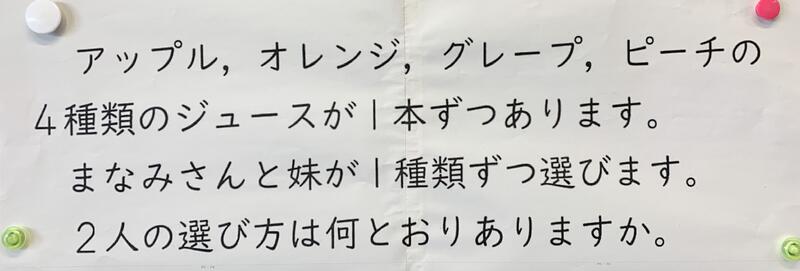 アップル，オレンジ，グレープ，ピーチの
4種類のジュースが1本ずつあります。
まなみさんと妹が1種類ずつ選びます。
2人の選び方は何とおりありますか。